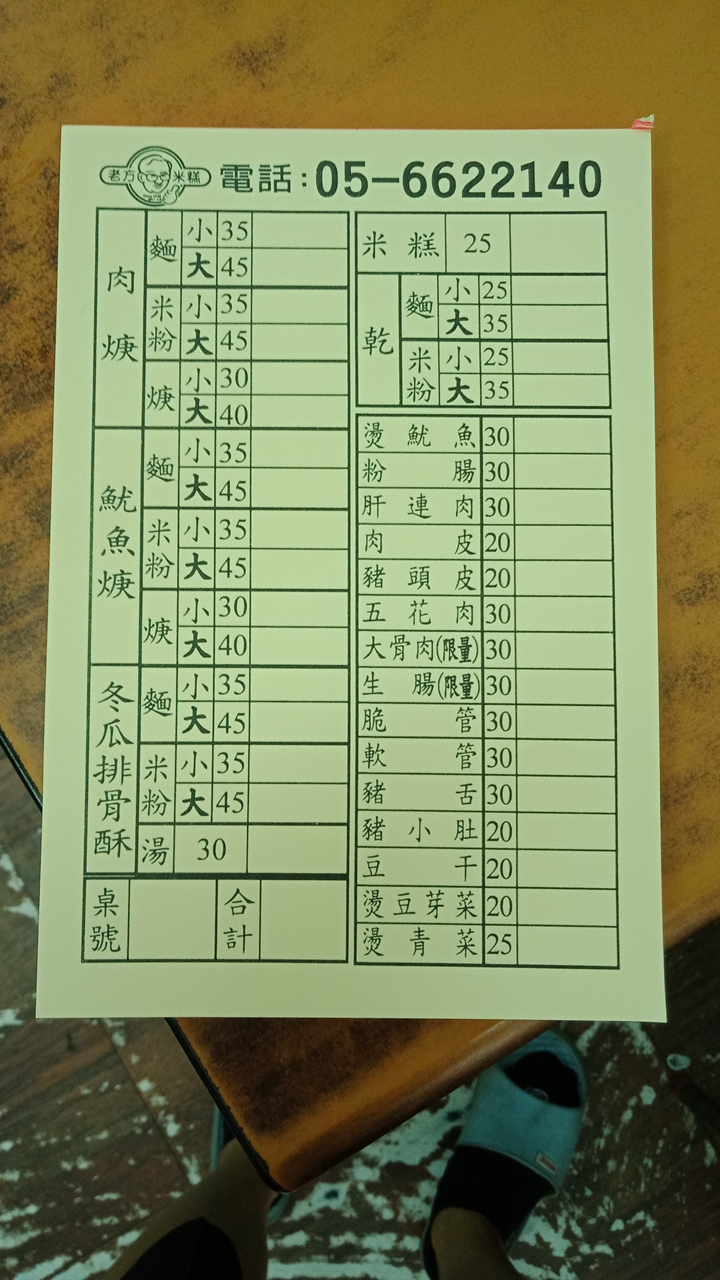 老方米糕 電話:05-6622140
肉焿
麵 小 35
大 45
米粉 小 35
大 45
焿 小 30
大 40
魷魚焿
麵 小 35
大 45
米粉 小 35
大 45
焿 小 30
大 40
冬瓜排骨酥
麵 小 35
大 45
米粉 小 35
大 45
湯 30
桌號 合計
米糕 25
乾
麵 小 25
大 35
米粉 小 25
大 35
燙魷魚 30
粉腸 30
肝連肉 30
肉皮 20
豬頭皮 20
五花肉 30
大骨肉(限量) 30
生腸(限量) 30
脆管 30
軟管 30
豬舌 30
豬小肚 20
豆干 20
燙豆芽菜 20
燙青菜 25